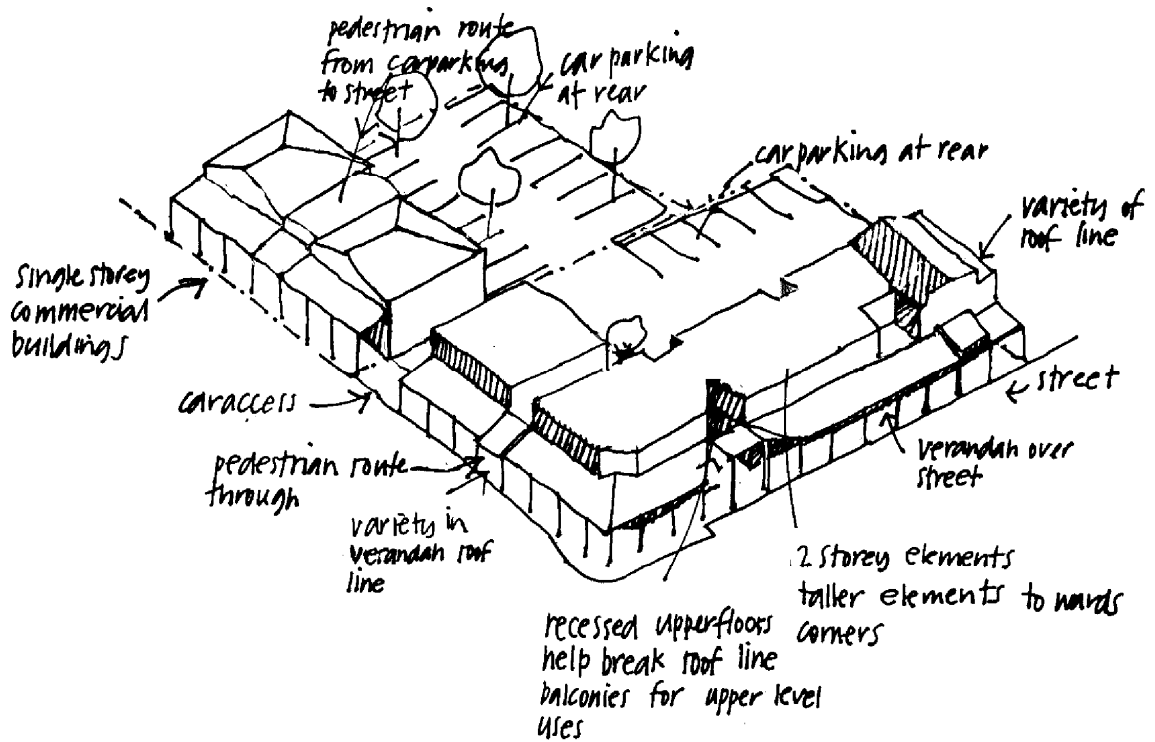 pedestrian route
from carparking
to street
car parking
at rear
car parking at rear
variety of
roof line
single storey
commercial
buildings
car access
street
pedestrian route
through
verandah over
street
variety in
verandah roof
line
2 storey elements
taller elements to wards
corners
recessed upperfloors
help break roof line
balconies for upper level
uses